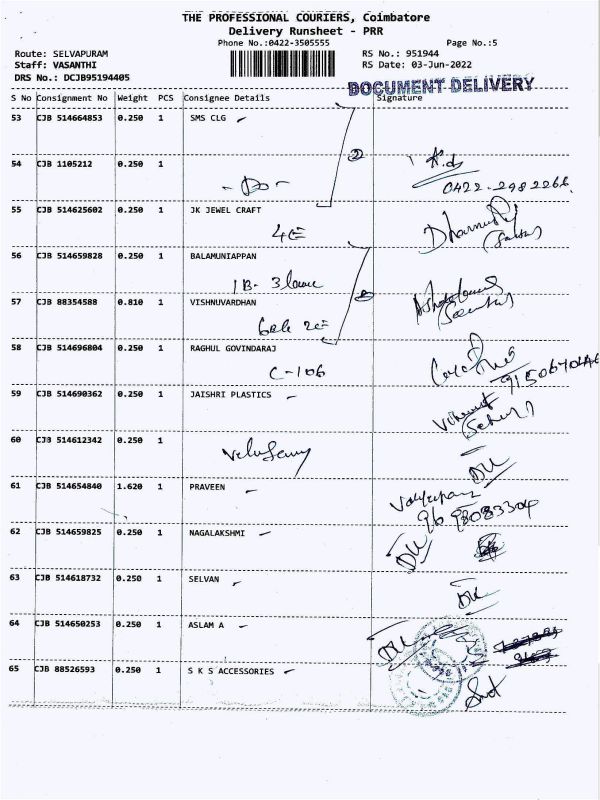 THE PROFESSIONAL COURIERS, Coimbatore
Delivery Runsheet - PRR
Phone No.:0422-3505555 Page No.:5
Route: SELVAPURAM RS No.: 951944
Staff: VASANTHI RS Date: 03-Jun-2022
DRS No.: DCJB95194405
DOCUMENT DELIVERY
S No Consignment No Weight PCS Consignee Details Signature
53 CJB 514664853 0.250 1 SMS CLG
54 CJB 1105212 0.250 1
- Do -
0422-2982266
55 CJB 514625602 0.250 1 JK JEWEL CRAFT
4E
56 CJB 514659828 0.250 1 BALAMUNIAPPAN
1B-
57 CJB 88354588 0.810 1 VISHNUVARDHAN
2E
58 CJB 514696804 0.250 1 RAGHUL GOVINDARAJ
C-106
59 CJB 514690362 0.250 1 JAISHRI PLASTICS
60 CJB 514612342 0.250 1
Velusamy
DU
61 CJB 514654840 1.620 1 PRAVEEN
62 CJB 514659825 0.250 1 NAGALAKSHMI
DU
63 CJB 514618732 0.250 1 SELVAN
DU
64 CJB 514650253 0.250 1 ASLAM A
DU
65 CJB 88526593 0.250 1 S K S ACCESSORIES